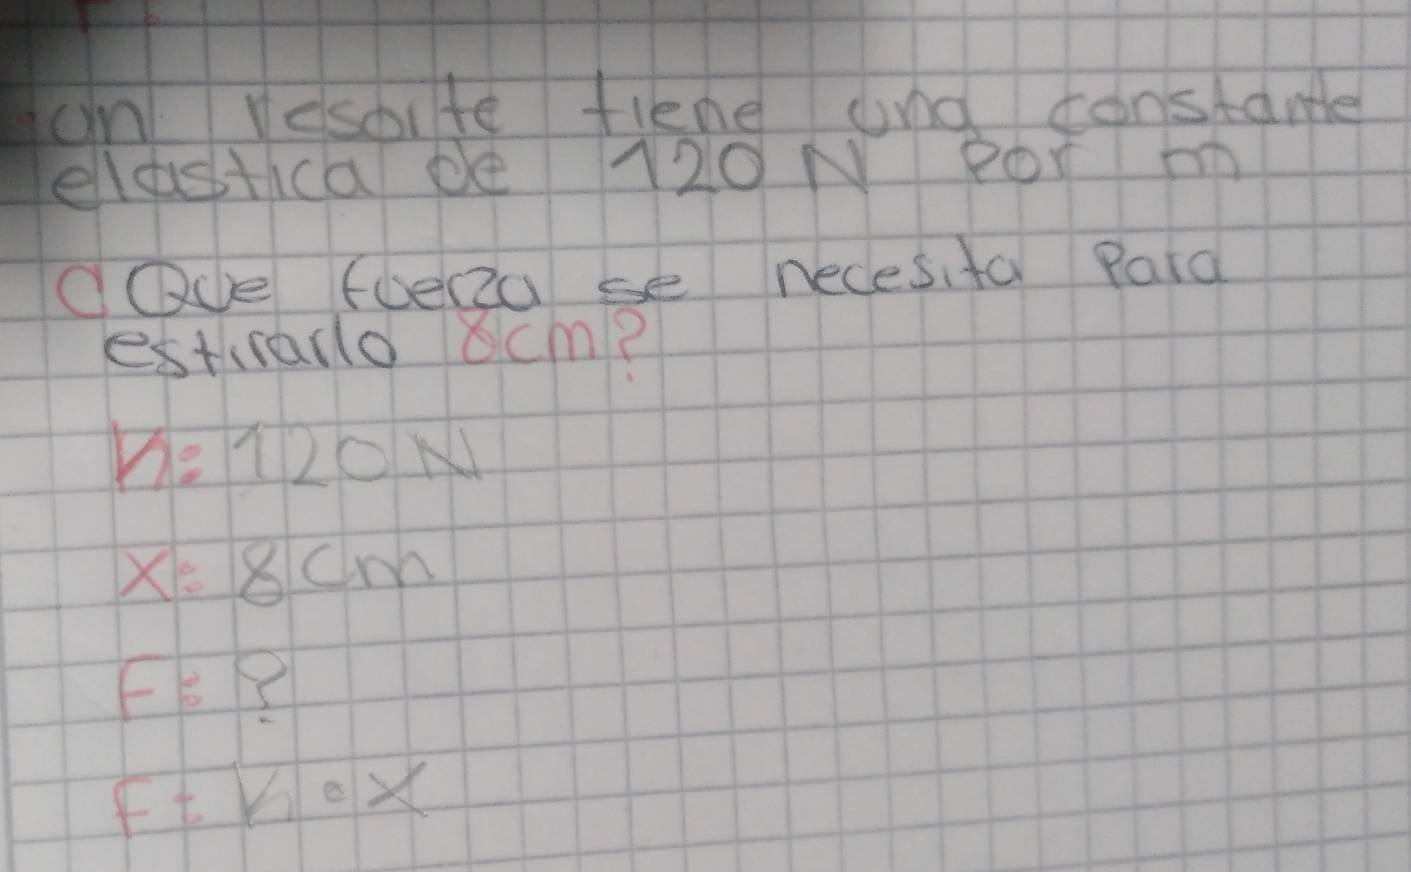 un resorte tiene una constante
elastica de 120 N Por m
Que fuerza se necesita Para
estirarlo 8cm?
K: 120 N
X: 8 Cm
F: ?
F = K • X